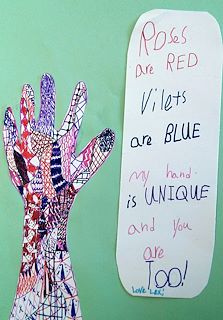 Roses
are RED
Vilets
are BLUE
my hand
is UNIQUE
and you
are
TOO!
LOVE Lexi